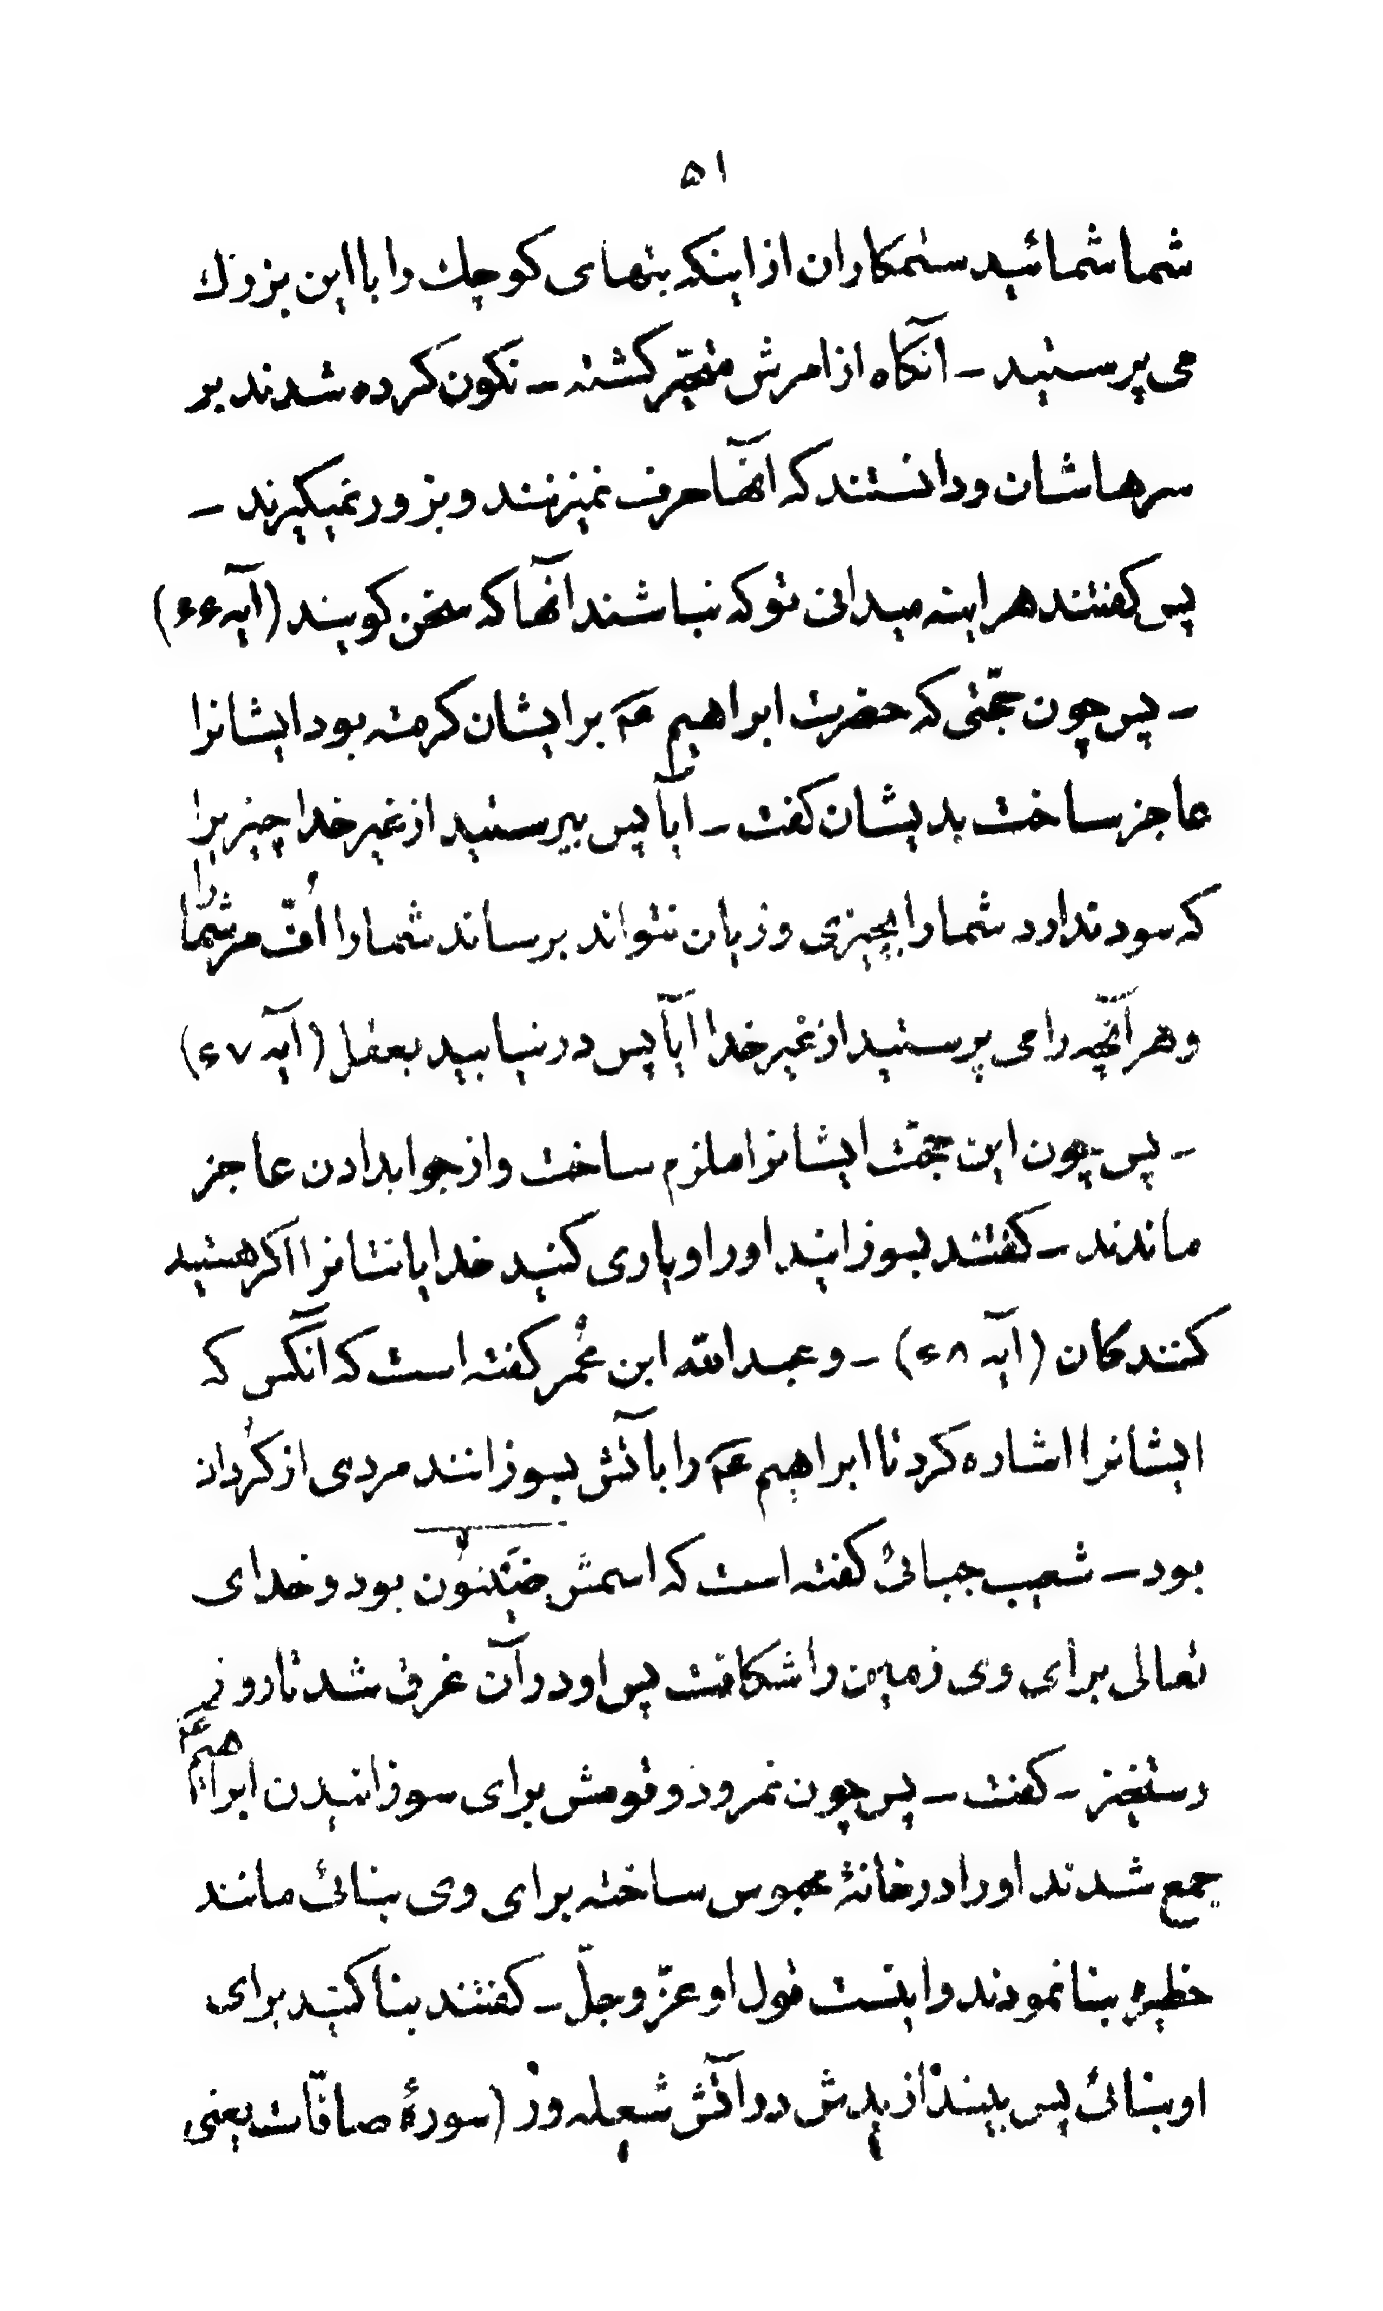 ۵۱
شما شمائید ستمکاران از اینکه بتهای کوچك را با این بزرك
می پرستید ـ آنکاه از امرش متحیّر کشته ـ نکون کرده شدند بر
سرهاشان و دانستند که آنها حرف نمیزنند و بزور نمیکیرند ـ
پس کفتند هراینه میدانی تو که نباشند آنها که سخن کویند (آیه ۶۶)
ـ پس چون حجّتی که حضرت ابراهیم عم بر ایشان کرفته بود ایشانرا
عاجز ساخت بدیشان کفت ـ آیا پس میپرستید از غیر خدا چیزیرا
که سود ندارد شما را بچیزی و زیان نتواند برساند شما را اُفّ مر شما را
و هر آنچه را می پرستید از غیر خدا آیا پس درنیابید بعقل (آیه ۶۷)
ـ پس چون این حجّت ایشانرا ملزم ساخت و از جواب دادن عاجز
ماندند ـ کفتند بسوزانید او را و یاری کنید خدایانتانرا اکر هستید
کنندکان (آیه ۶۸) ـ و عبدالله ابن عُمر کفته است که آنکس که
ایشانرا اشاره کرد تا ابراهیم عم را بآتش بسوزانند مردی از کُردان
بود ـ شعیب جبائی کفته است که اسمش ضَیْنون بود و خدای
تعالی برای وی زمین را شکافت پس او در آن غرق شد تا روز
رستخیز ـ کفت ـ پس چون نمرود و قومش برای سوزانیدن ابراهیم عم
جمع شدند او را در خانهٔ محبوس ساخته برای وی بنائی مانند
حظیره بنا نمودند و اینست قول او عزّ و جلّ ـ کفتند بنا کنید برای
او بنائی پس بیندازیدش در آتش شعله ور (سورهٔ صافّات یعنی